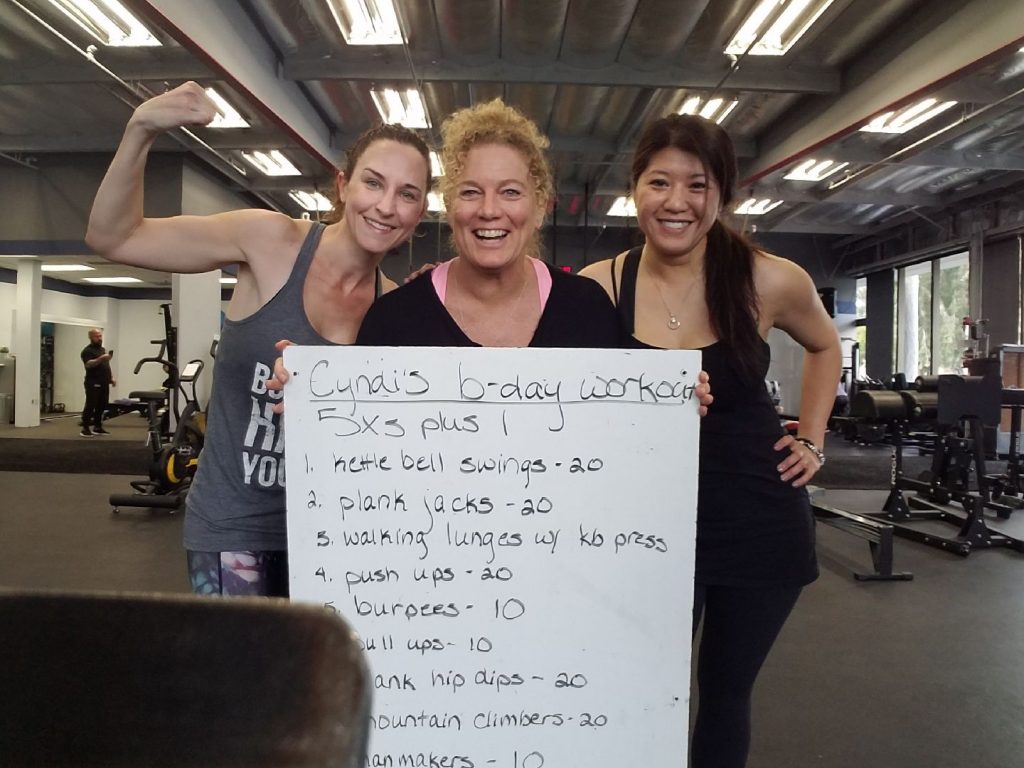 Cyndi's b-day workout
5xs plus 1
1. kettle bell swings - 20
2. plank jacks - 20
3. walking lunges w/ kb press
4. push ups - 20
5. burpees - 10
pull ups - 10
ank hip dips - 20
mountain climbers - 20
man makers - 10
YOU